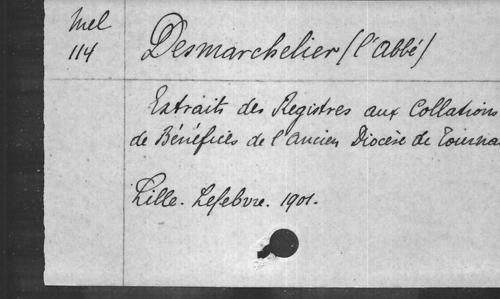 Mel
114
Desmarchelier (l'Abbé)
Extraits des Registres aux Collations
de Bénéfices de l'ancien Diocèse de Tournai
Lille. Lefebvre. 1901.